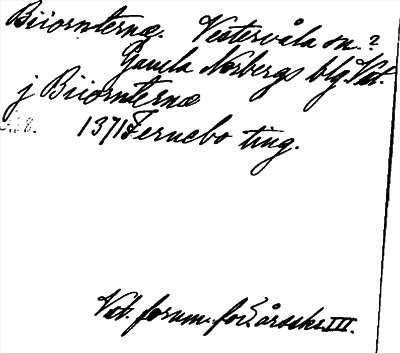 Biiornternæ. Västervåla sn.?
Gamla Norbergs btg. Vst.
j Biiornternæ
1371 Fernebo ting.
Vst. fornm. för. årsskr. III.